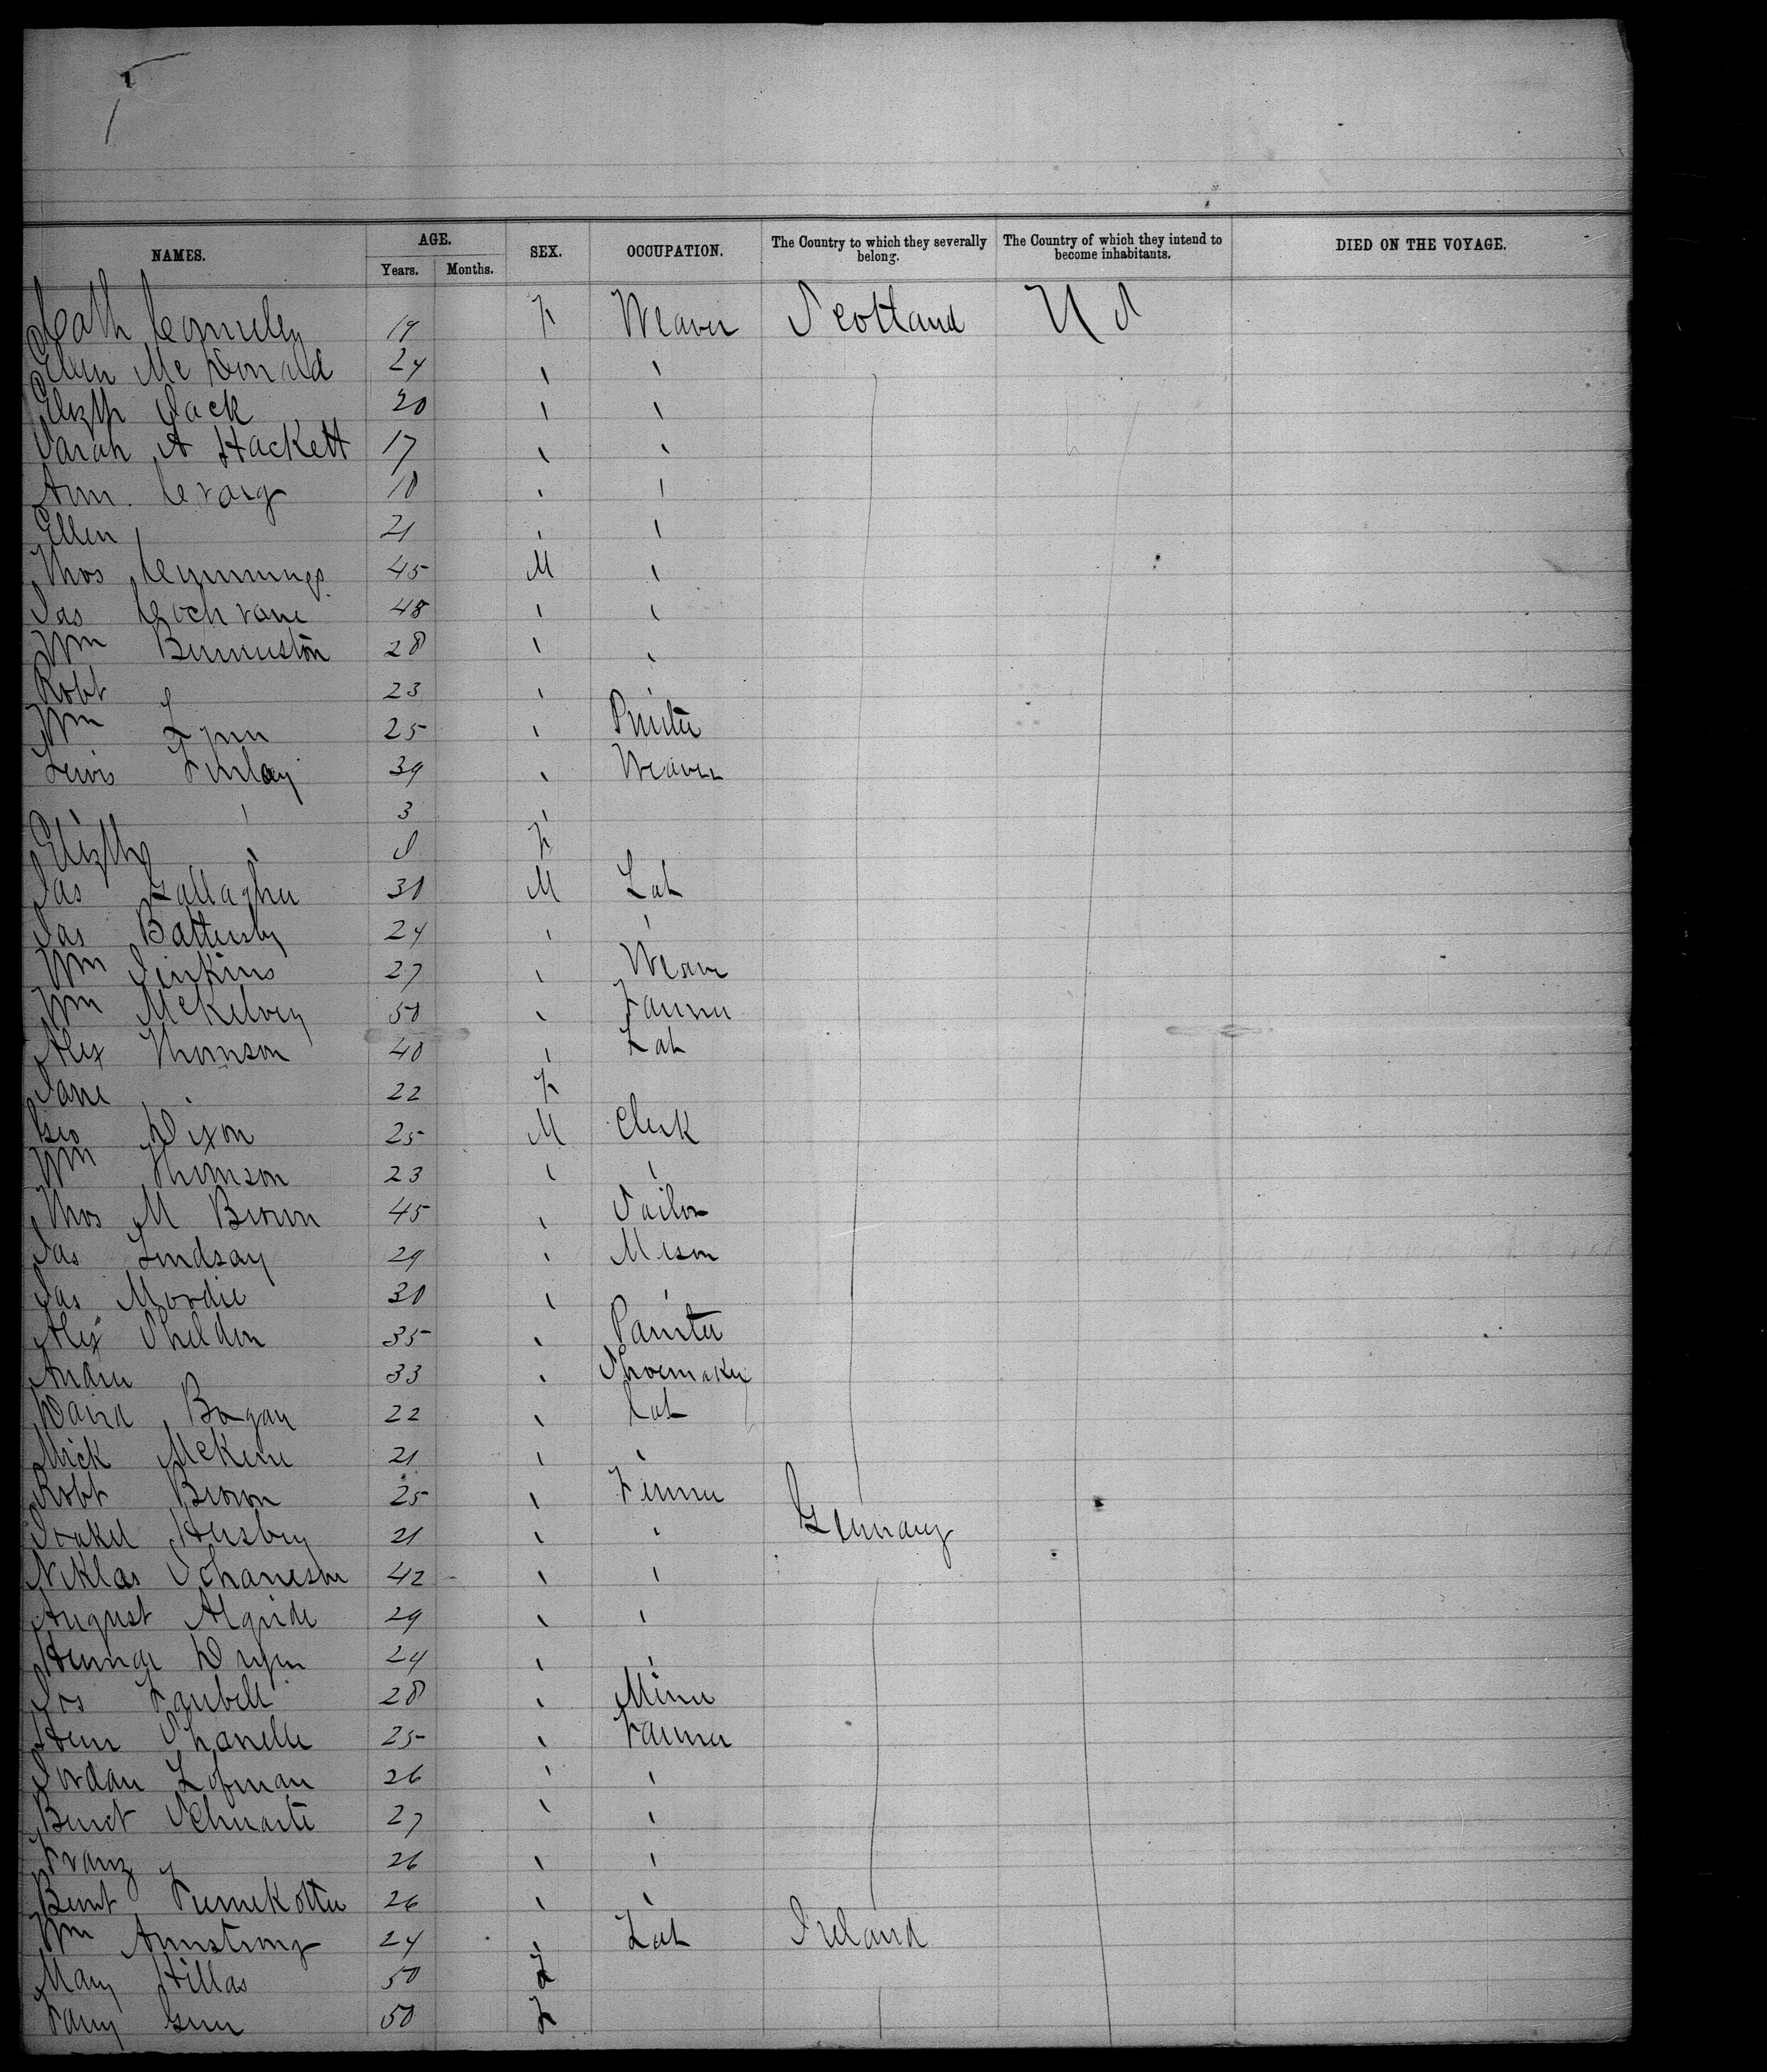 NAMES. AGE. SEX. OCCUPATION. The Country to which they severally belong. The Country of which they intend to become inhabitants. DIED ON THE VOYAGE.
Years. Months.
Cath 19 F Weaver Scotland U S
Ellen McDonald 24 " "
Elizth Jack 20 " "
Sarah A Hackett 17 " "
Ann Craig 18 " "
Ellen " 21 " "
Thos Cummings 45 M "
Jas Cochrane 48 " "
Wm 28 " "
Robt " 23 " "
Wm Lynn 25 " Printer
Lewis Finlay 39 " Weaver
" 3 "
Elizth " 8 F
Jas Gallagher 30 M Lab
Jas Battersby 24 " "
Wm Jenkins 27 " Weaver
Wm McKelvey 50 " Farmer
Alex Thomson 40 " Lab
Jane " 22 F
Geo Dixon 25 M Clerk
Wm Thomson 23 " "
Thos M Brown 45 " Sailor
Jas Lindsay 29 " Mason
Jas Mordie 30 " "
Alex Sheldon 35 " Painter
Andrew 33 " Shoemaker
David Bogan 22 " Lab
Mick 21 " "
Robt Brown 25 " Farmer
21 " " Germany
Niklas 42 " "
August 29 " "
24 " "
Jos 28 " Miner
25 " Farmer
Jordan Lofman 26 " "
27 " "
Franz " 26 " "
26 " "
Wm Armstrong 24 " Lab Ireland
Mary Hillas 50 F
50 F